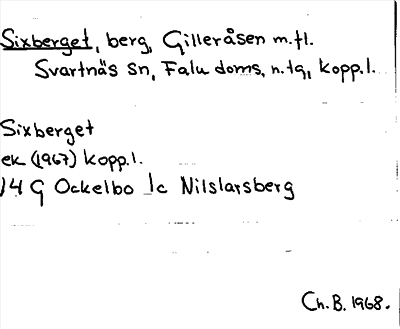 Sixberget, berg, Gilleråsen m.fl.
Svartnäs sn, Falu doms, n.tg, kopp.l.
Sixberget
ek (1967) kopp.l.
14 G Ockelbo 1c Nilslarsberg
Ch.B. 1968.